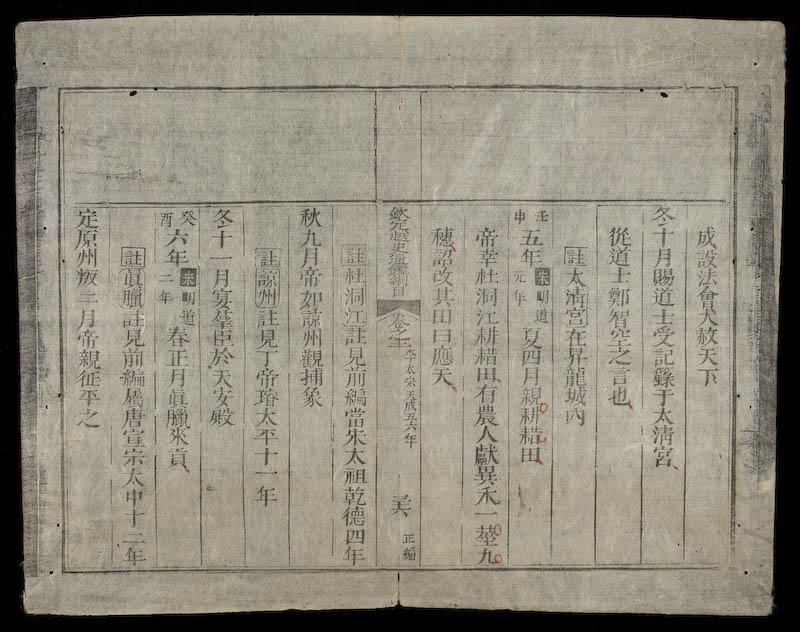 成設法會大赦天下
冬十月賜道士受記錄于太淸宮
從道士鄭智空之言也
註太淸宮在昇龍城內
壬申五年宋明道元年夏四月親耕耤田
帝幸杜洞江耕耤田有農人獻異禾一莖九
穗詔改其田曰應天
欽定越史通鑑綱目 卷之二 李太宗天成五六年 正編
註杜洞江註見前編當宋太祖乾德四年
秋九月帝如諒州觀捕象
註諒州註見丁帝璿太平十一年
冬十一月宴羣臣於天安殿
癸酉六年宋明道二年春正月眞臘來貢
註眞臘註見前編屬唐宣宗大中十二年
定原州叛二月帝親征平之